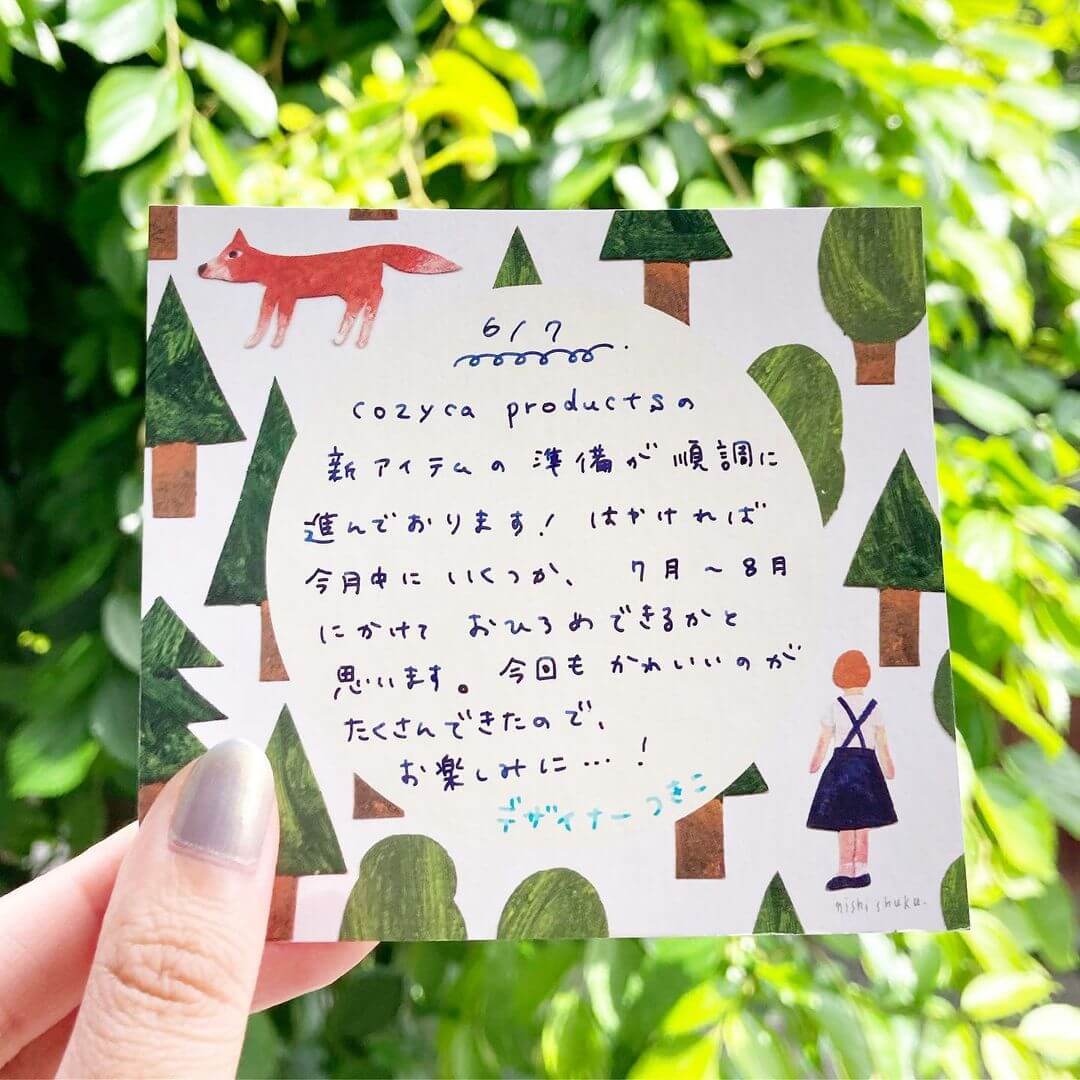 6/7
cozyca productsの
新アイテムの準備が順調に
進んでおります! はやければ
今月中にいくつか、7月〜8月
にかけておひろめできるかと
思います。今回もかわいいのが
たくさんできたので、
お楽しみに…!
デザイナーつきこ
nishi shuku.